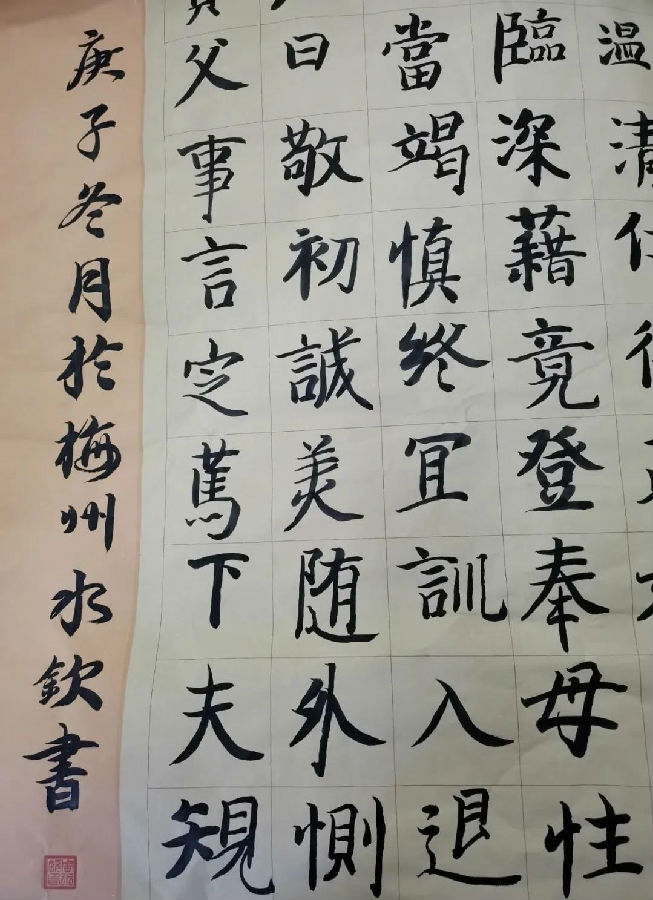 温清
臨深藉竟登奉母性
當竭慎終宜訓入退
曰敬初誠美随外惻
父事言定篤下夫規
庚子冬月於梅州水欽書